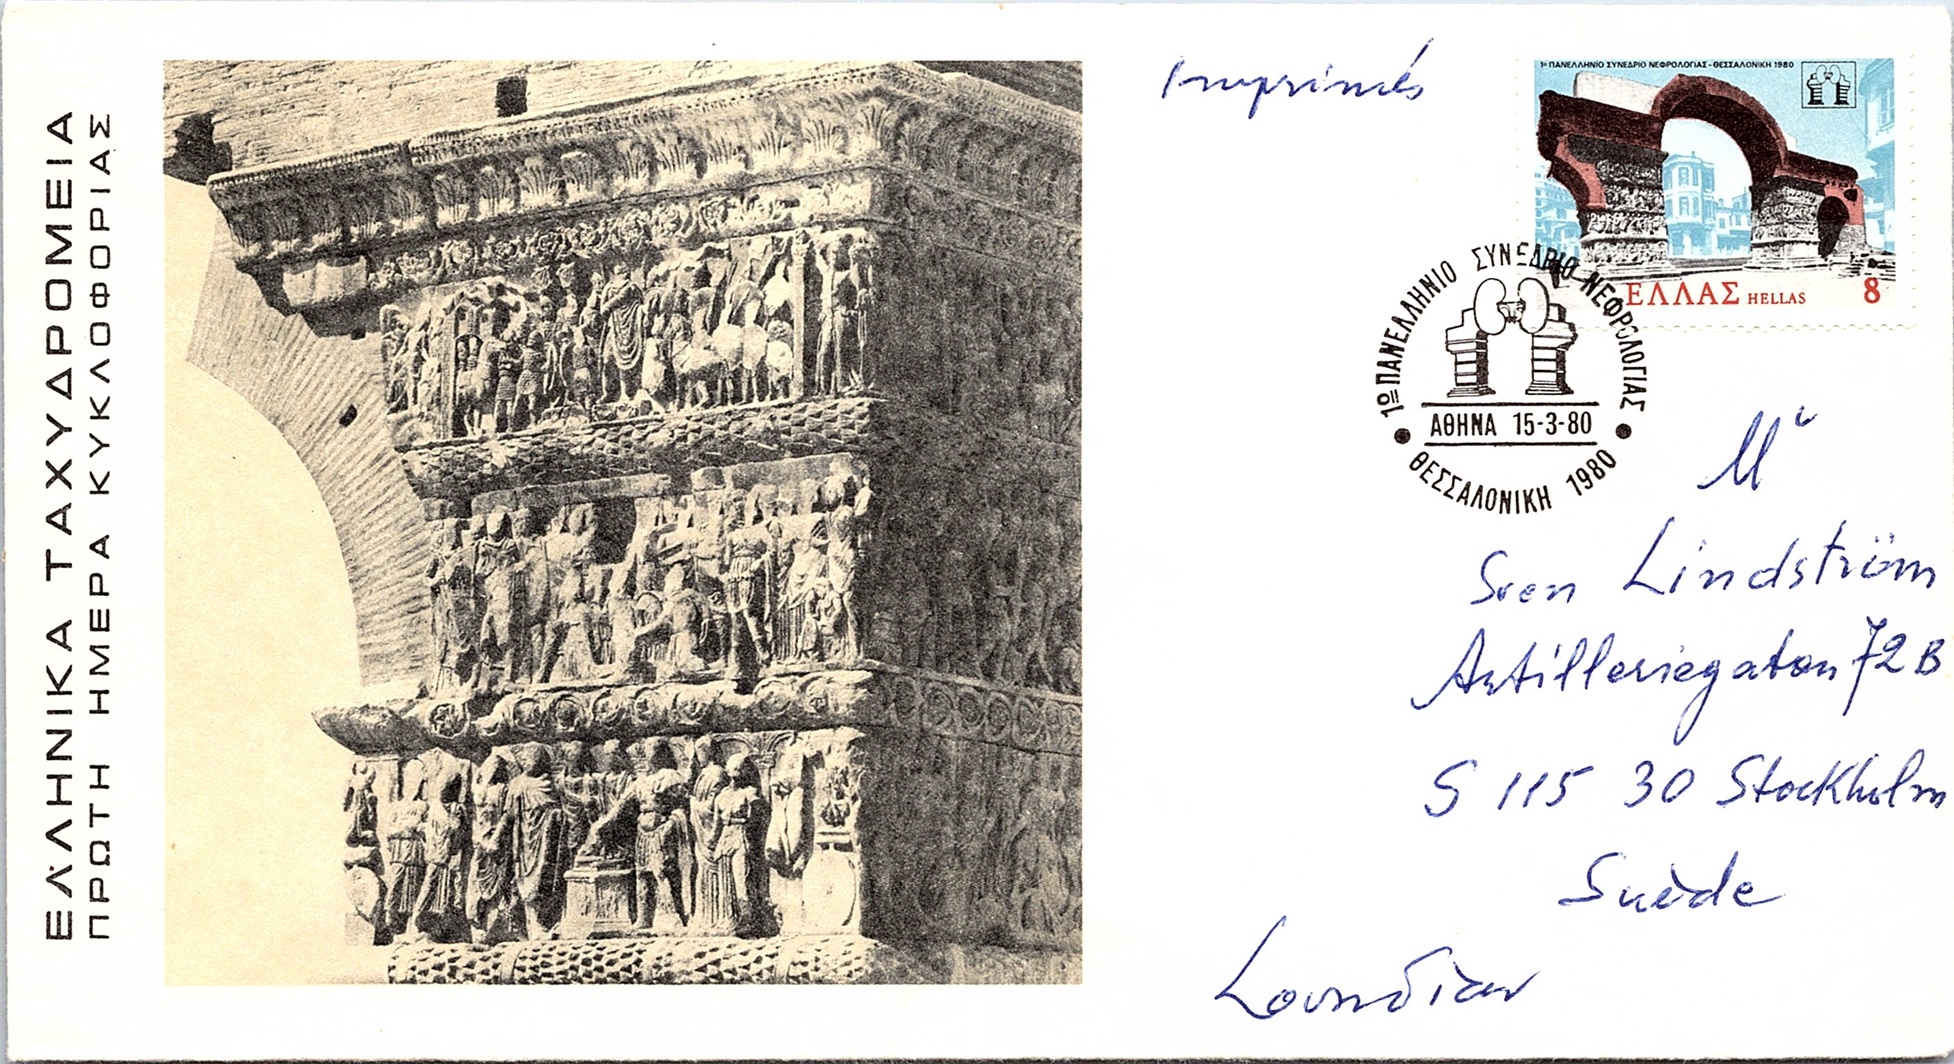 ΕΛΛΗΝΙΚΑ ΤΑΧΥΔΡΟΜΕΙΑ
ΠΡΩΤΗ ΗΜΕΡΑ ΚΥΚΛΟΦΟΡΙΑΣ
Imprimés
1ο ΠΑΝΕΛΛΗΝΙΟ ΣΥΝΕΔΡΙΟ ΝΕΦΡΟΛΟΓΙΑΣ - ΘΕΣΣΑΛΟΝΙΚΗ 1980
ΕΛΛΑΣ HELLAS 8
1ο ΠΑΝΕΛΛΗΝΙΟ ΣΥΝΕΔΡΙΟ ΝΕΦΡΟΛΟΓΙΑΣ
ΑΘΗΝΑ 15-3-80
ΘΕΣΣΑΛΟΝΙΚΗ 1980
Mr
Sven Lindström
Artilleriegatan 72B
S 115 30 Stockholm
Suède
Σουηδίαν